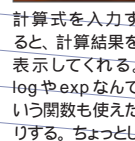 計算式を入力す
ると、計算結果を
表示してくれる。
logやexpなんて
いう関数も使えた
りする。ちょっとし